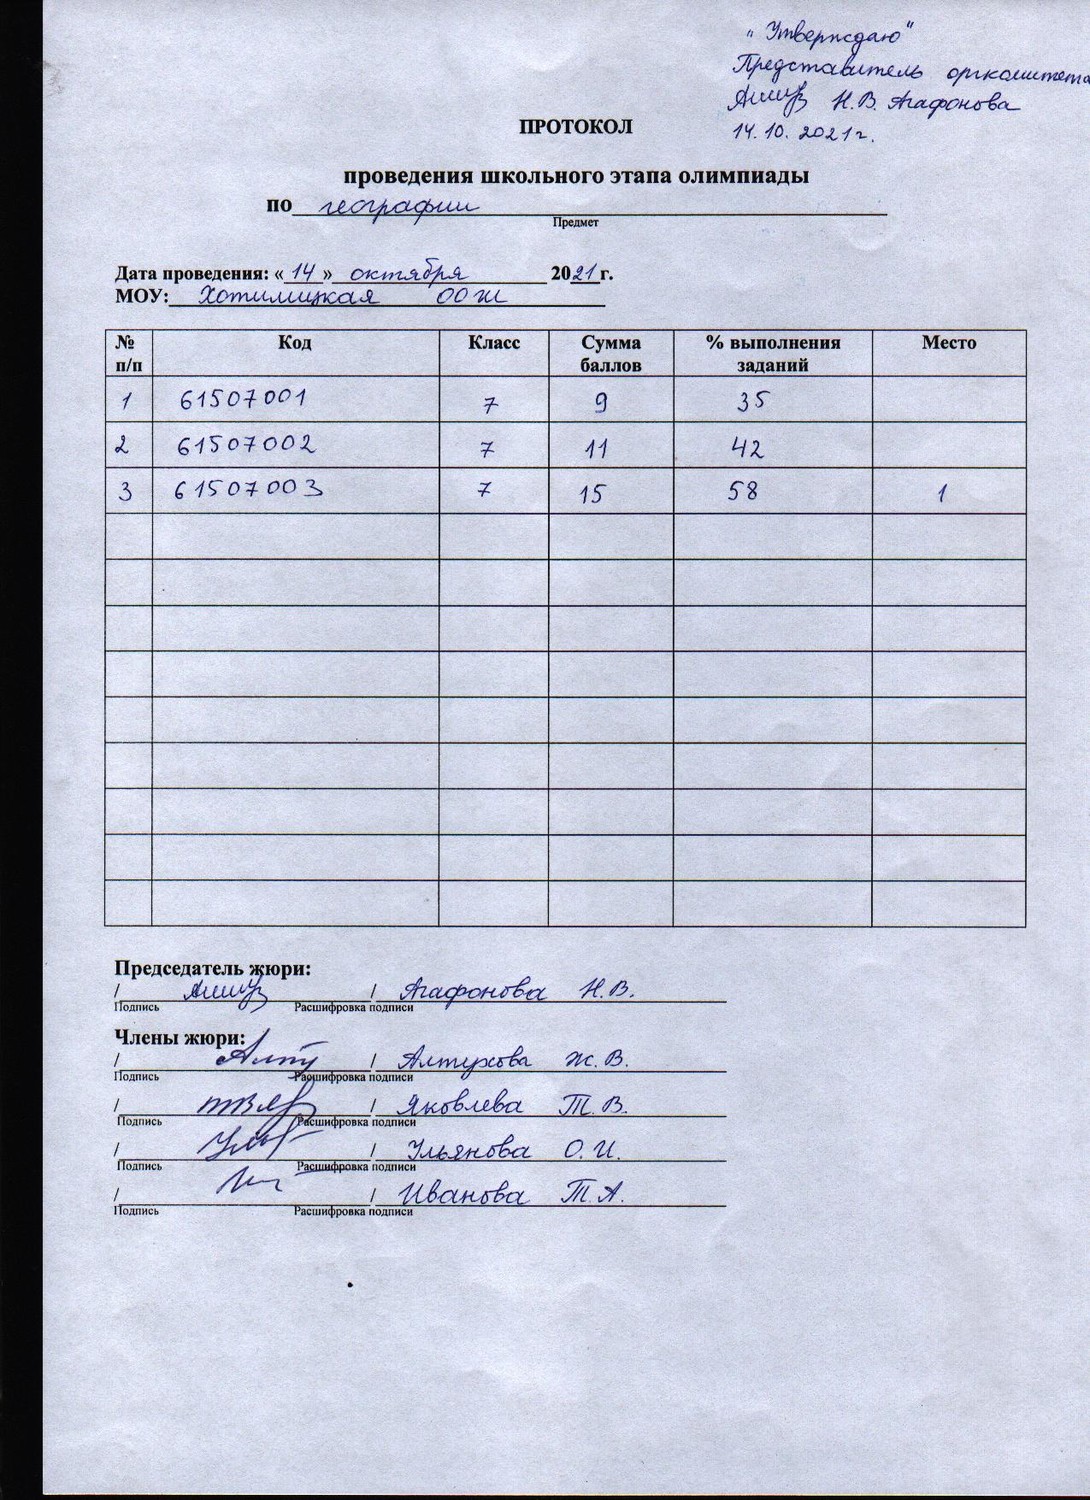 "Утверждаю"
Представитель оргкомитета
Н.В. Агафонова
14.10.2021г.
ПРОТОКОЛ
проведения школьного этапа олимпиады
по географии
Предмет
Дата проведения: «14» октября 2021г.
МОУ: Хотимицкая ООШ
№ п/п Код Класс Сумма баллов % выполнения заданий Место
1 61507001 7 9 35
2 61507002 7 11 42
3 61507003 7 15 58 1
Председатель жюри:
/ / Агафонова Н.В.
Подпись Расшифровка подписи
Члены жюри:
/ / Алтухова Ж.В.
Подпись Расшифровка подписи
/ / Яковлева Т.В.
Подпись Расшифровка подписи
/ / Ульянова О.И.
Подпись Расшифровка подписи
/ / Иванова Т.А.
Подпись Расшифровка подписи